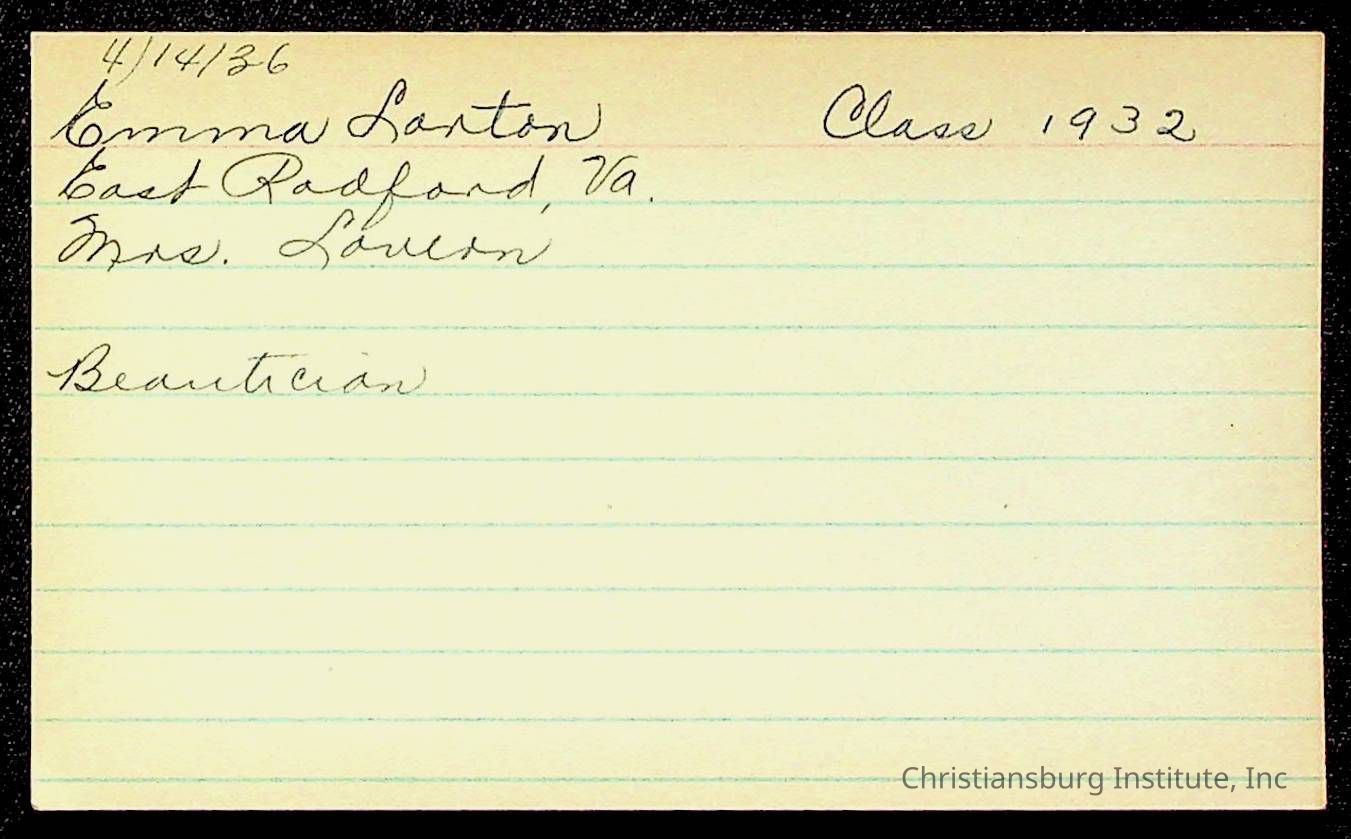 4/14/36
Emma Lorton Class 1932
East Radford, Va.
Mrs. Lovern
Beautician
Christiansburg Institute, Inc